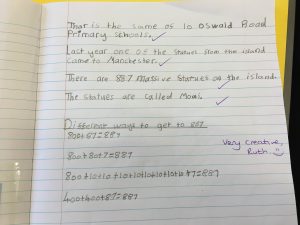 That is the same as 10 Oswald Road
Primary schools.
Last year one of the statues from the island
Came to Manchester.
There are 887 massive statues on the island.
The statues are called Moai.
Different ways to get to 887
800+87=887
800+80+7=887
800+10+10+10+10+10+10+10+10+7=887
400+400+87=887
Very creative,
Ruth.